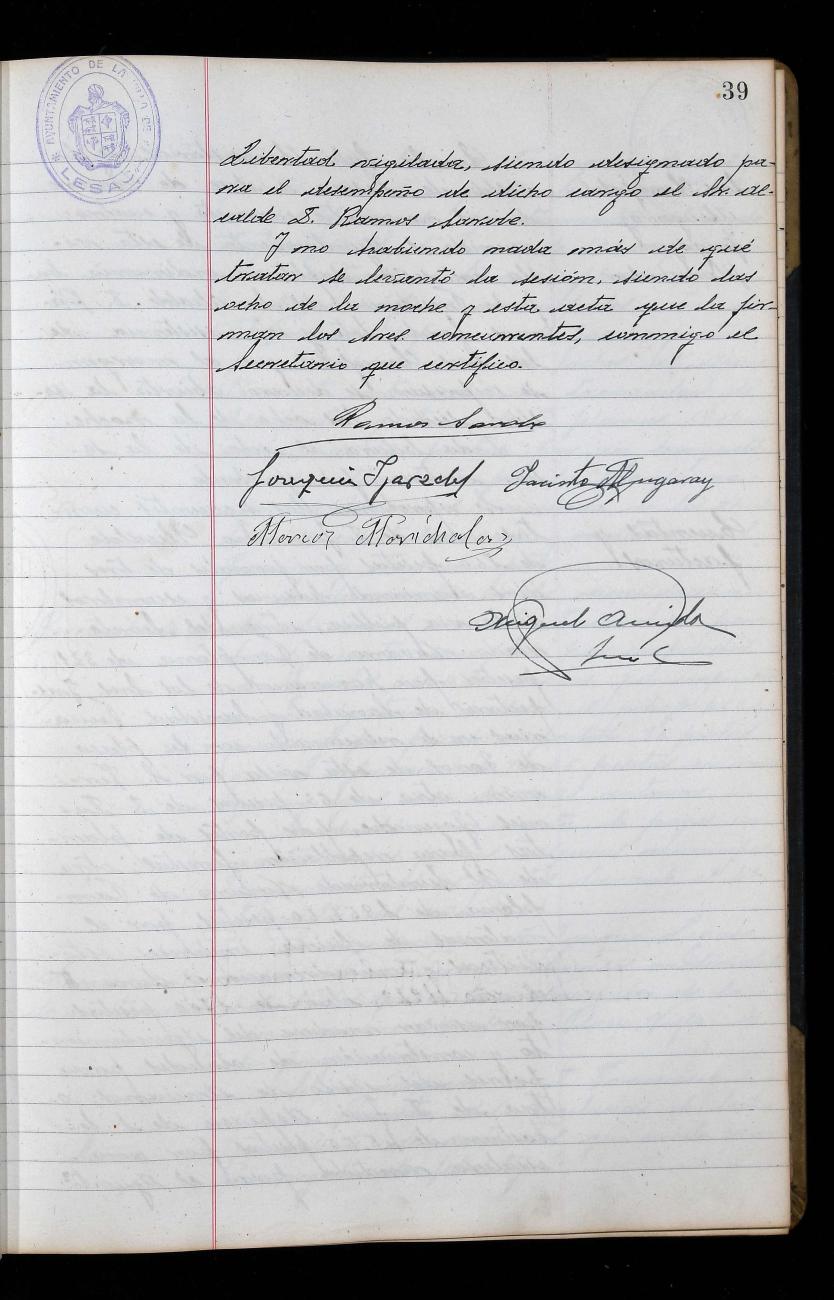 39
AYUNTAMIENTO DE LA VILLA DE
LESACA
Libertad vigilada, siendo designado pa-
ra el desempeño de dicho cargo el Sr. al-
calde D. Ramos Sarobe.
Y no habiendo nada más de qué
tratar se levantó la sesión, siendo las
ocho de la noche y esta acta que la fir-
man los Sres. concurrentes, conmigo el
Secretario que certifico.
Ramos Sarobe
Joaquin Jacinto
Marcos Marichalar
Miguel